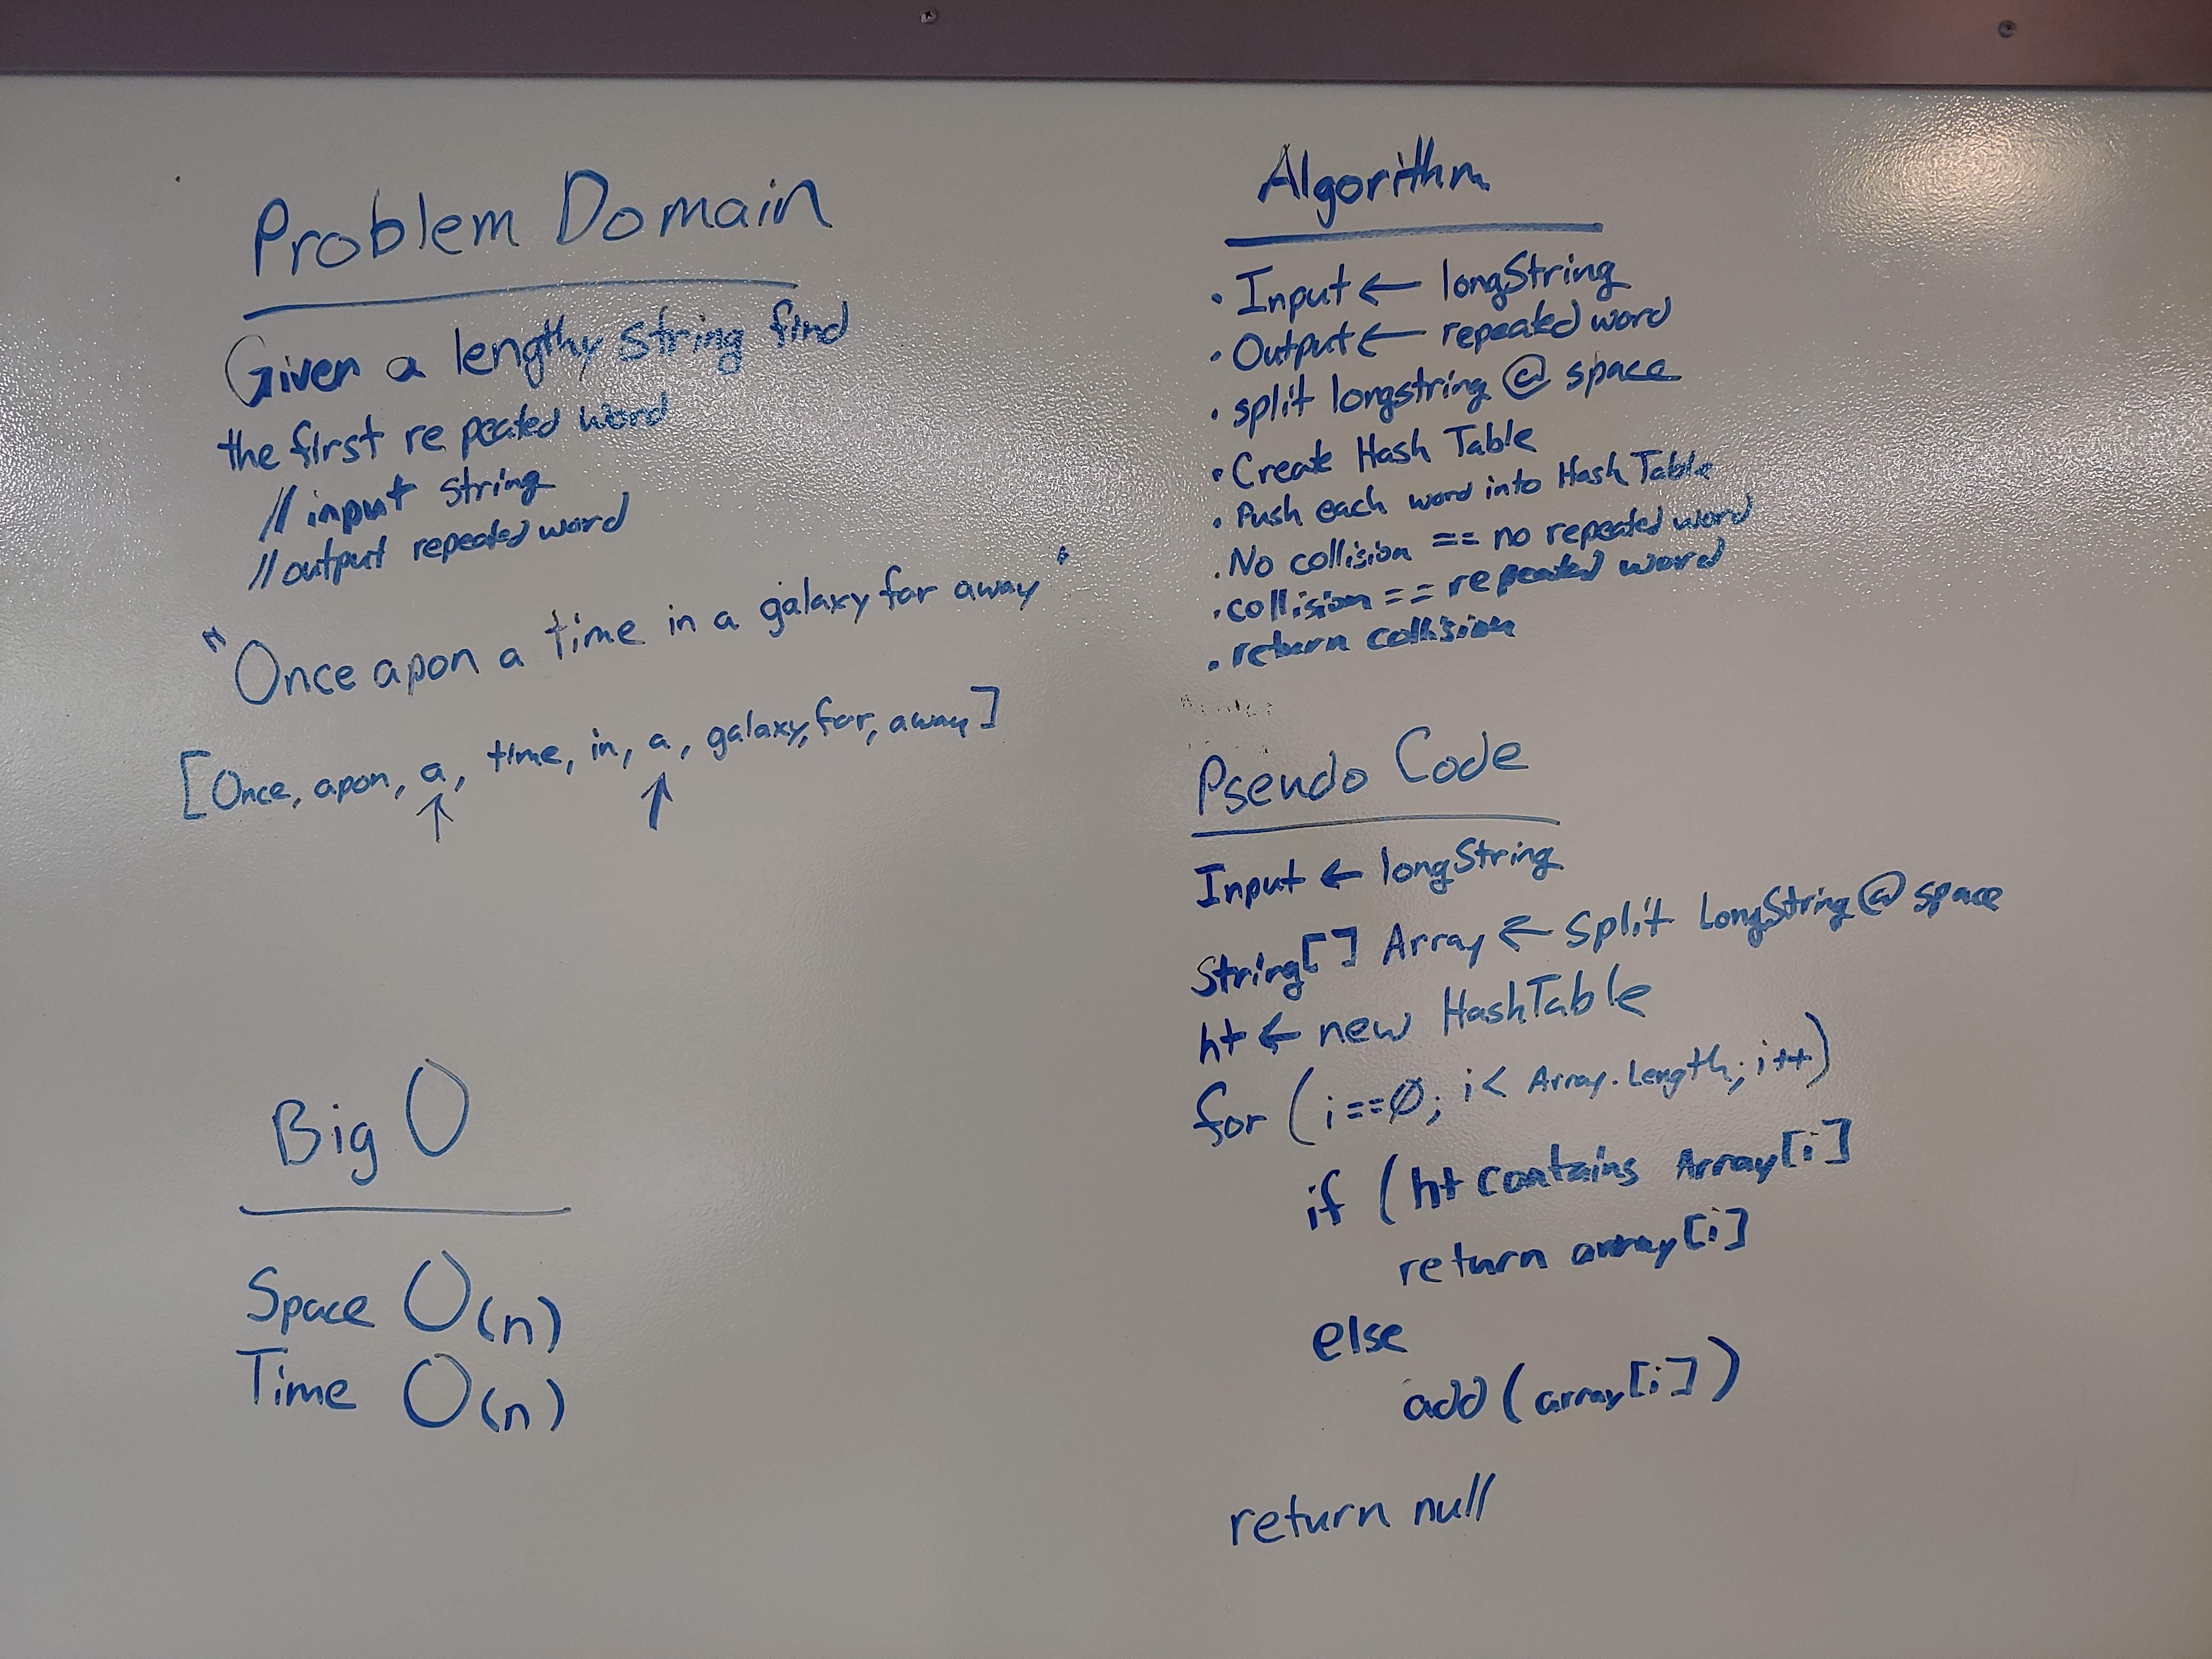 Problem Domain
Given a lengthy string find
the first repeated word
// input string
// output repeated word
"Once apon a time in a galaxy far away"
[Once, apon, a, time, in, a, galaxy, far, away]
Big O
Space O(n)
Time O(n)
Algorithm
· Input ← longString
· Output ← repeated word
· split longstring @ space
· Create Hash Table
· Push each word into Hash Table
· No collision == no repeated word
· collision == repeated word
· return collision
Pseudo Code
Input ← longString
String[] Array ← split LongString @ space
ht ← new HashTable
for (i==0; i< Array.Length; i++)
if (ht contains Array[i]
return array[i]
else
add (array[i])
return null